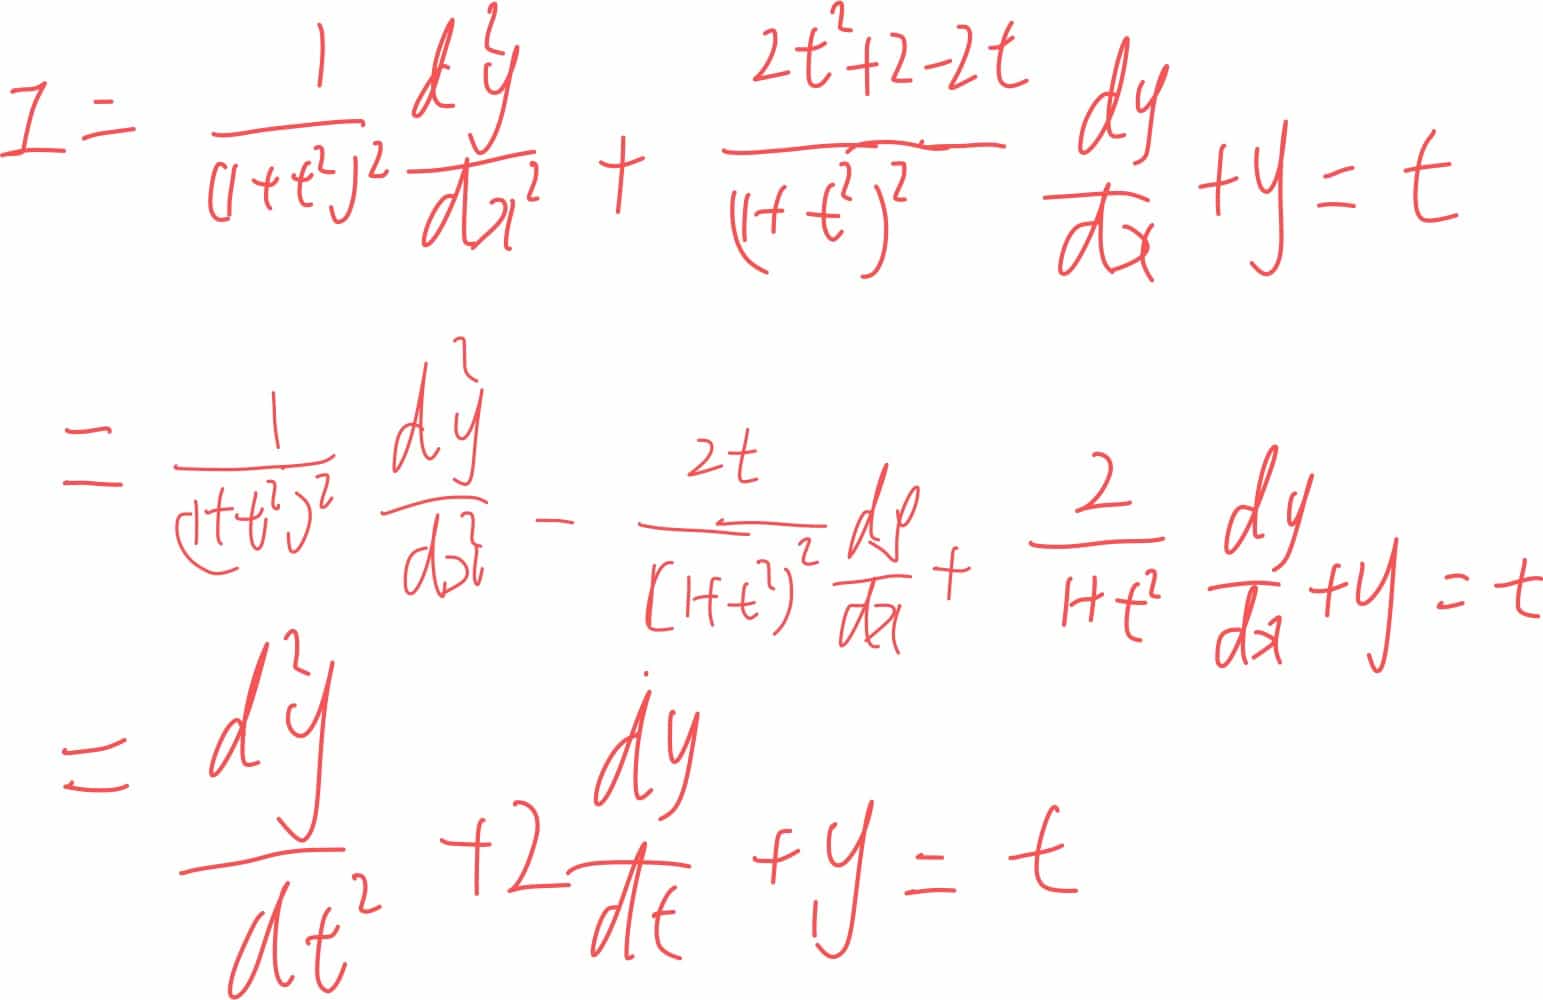 I = \frac{1}{(1+t^2)^2} \frac{d^2y}{dx^2} + \frac{2t^2+2-2t}{(1+t^2)^2} \frac{dy}{dx} + y = t
= \frac{1}{(1+t^2)^2} \frac{d^2y}{dx^2} - \frac{2t}{(1+t^2)^2} \frac{dy}{dx} + \frac{2}{1+t^2} \frac{dy}{dx} + y = t
= \frac{d^2y}{dt^2} + 2\frac{dy}{dt} + y = t